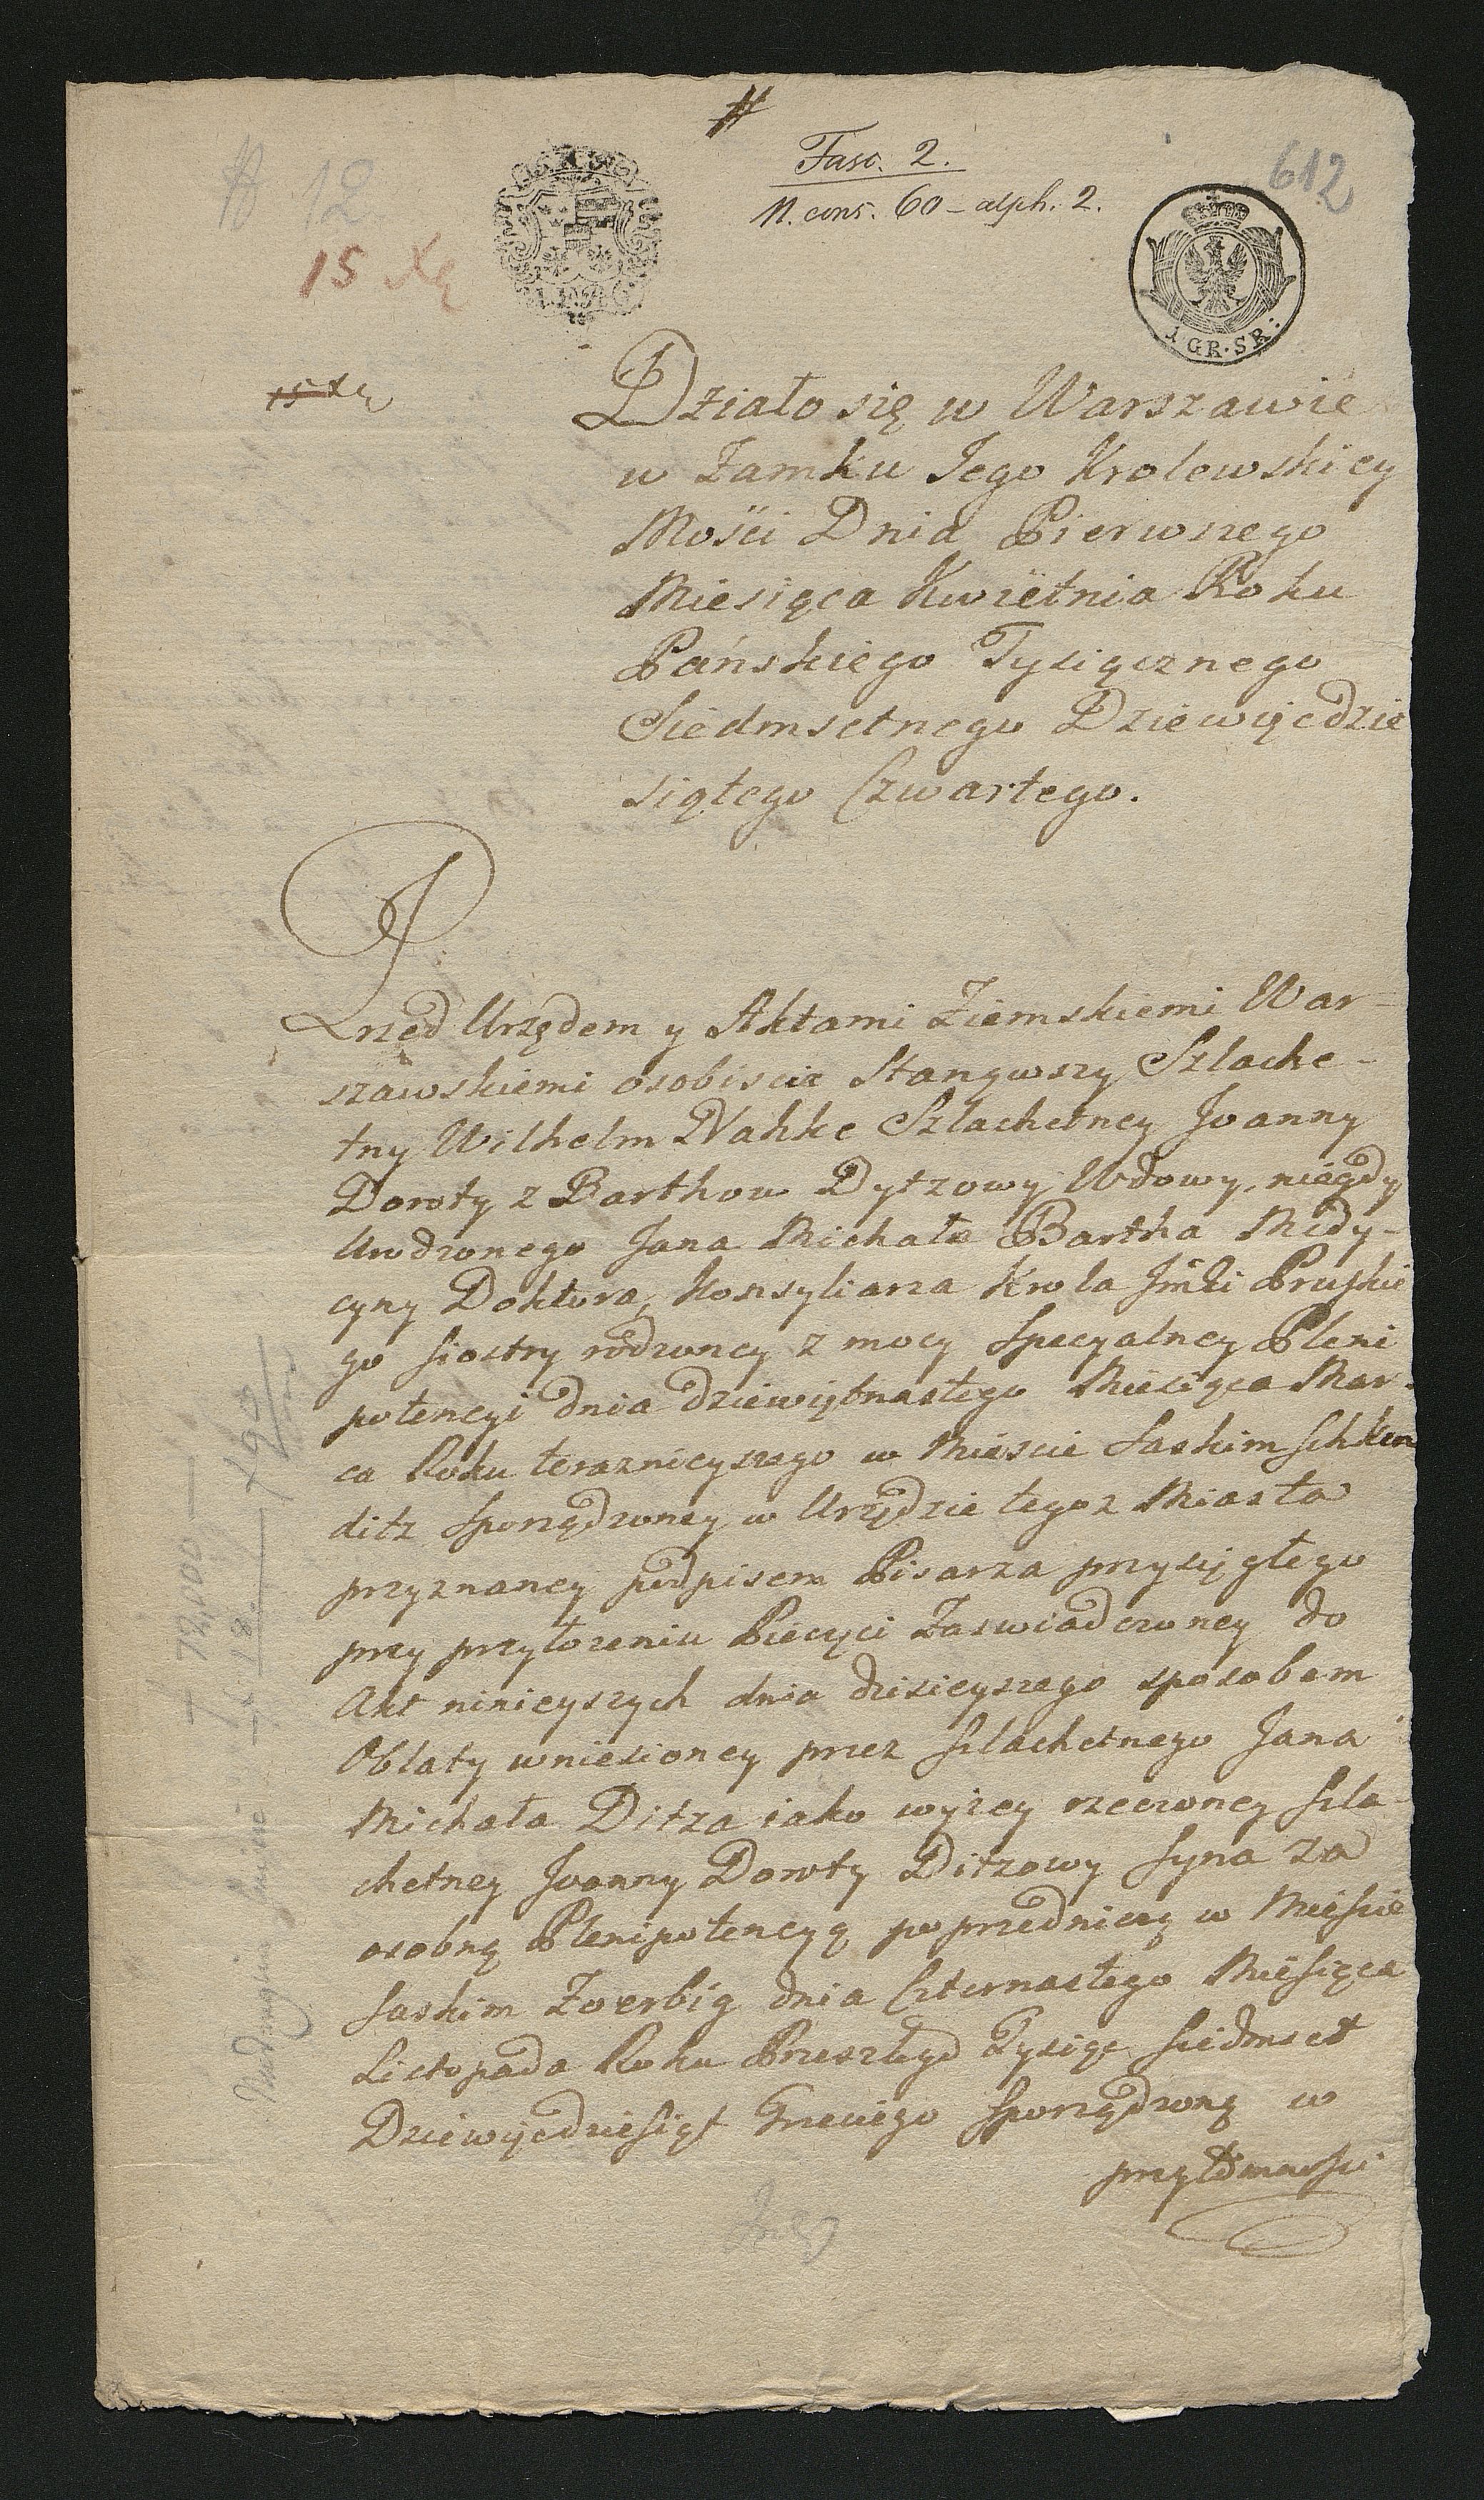 #
Fasc. 2.
N. cons. 60 – alph. 2.
612
# 12
15 Xę
1 GR. SR:
15 Xę
Działo się w Warszawie
w Zamku Jego Krolewskiey
Mości Dnia Pierwszego
Miesiąca Kwietnia Roku
Pańskiego Tysiącznego
Siedmsetnego Dziewięćdzie
siątego Czwartego.
Przed Urzędem y Aktami Ziemskiemi War-
szawskiemi osobiscie Stanąwszy Szlache-
tny Wilhelm Nahke Szlachetney Joanny
Doroty z Barthow Dytzowy Wdowy, niegdy
Urodzonego Jana Michała Bartha Medy-
cyny Doktora, Konsyliarza Krola Jmći Pruskie
go siostry rodzoney z mocy Specyalney Pleni
potencyi dnia dziewiętnastego Miesiąca Mar-
ca Roku teraznieyszego w Mieście Saskim Schkeu
ditz Sporządzoney w Urzędzie tegoz Miasta
przyznaney podpisem Pisarza przysięgłego
przy przyłozeniu Pieczęci Zaswiadczoney do
Akt ninieyszych dnia dzisieyszego sposobem
Oblaty wniesioney przez szlachetnego Jana
Michała Ditza iako wyżey rzeczoney szla-
chetney Joanny Doroty Ditzowy syna za
osobną Plenipotencyą poprzedniczą w Mieście
saskim Zoerbig dnia Czternastego Miesiąca
Listopada Roku Przeszłego Tysiąc siedmset
Dziewięćdziesiąt Trzeciego Sporządzoną w
przytomnosci
72,000
18